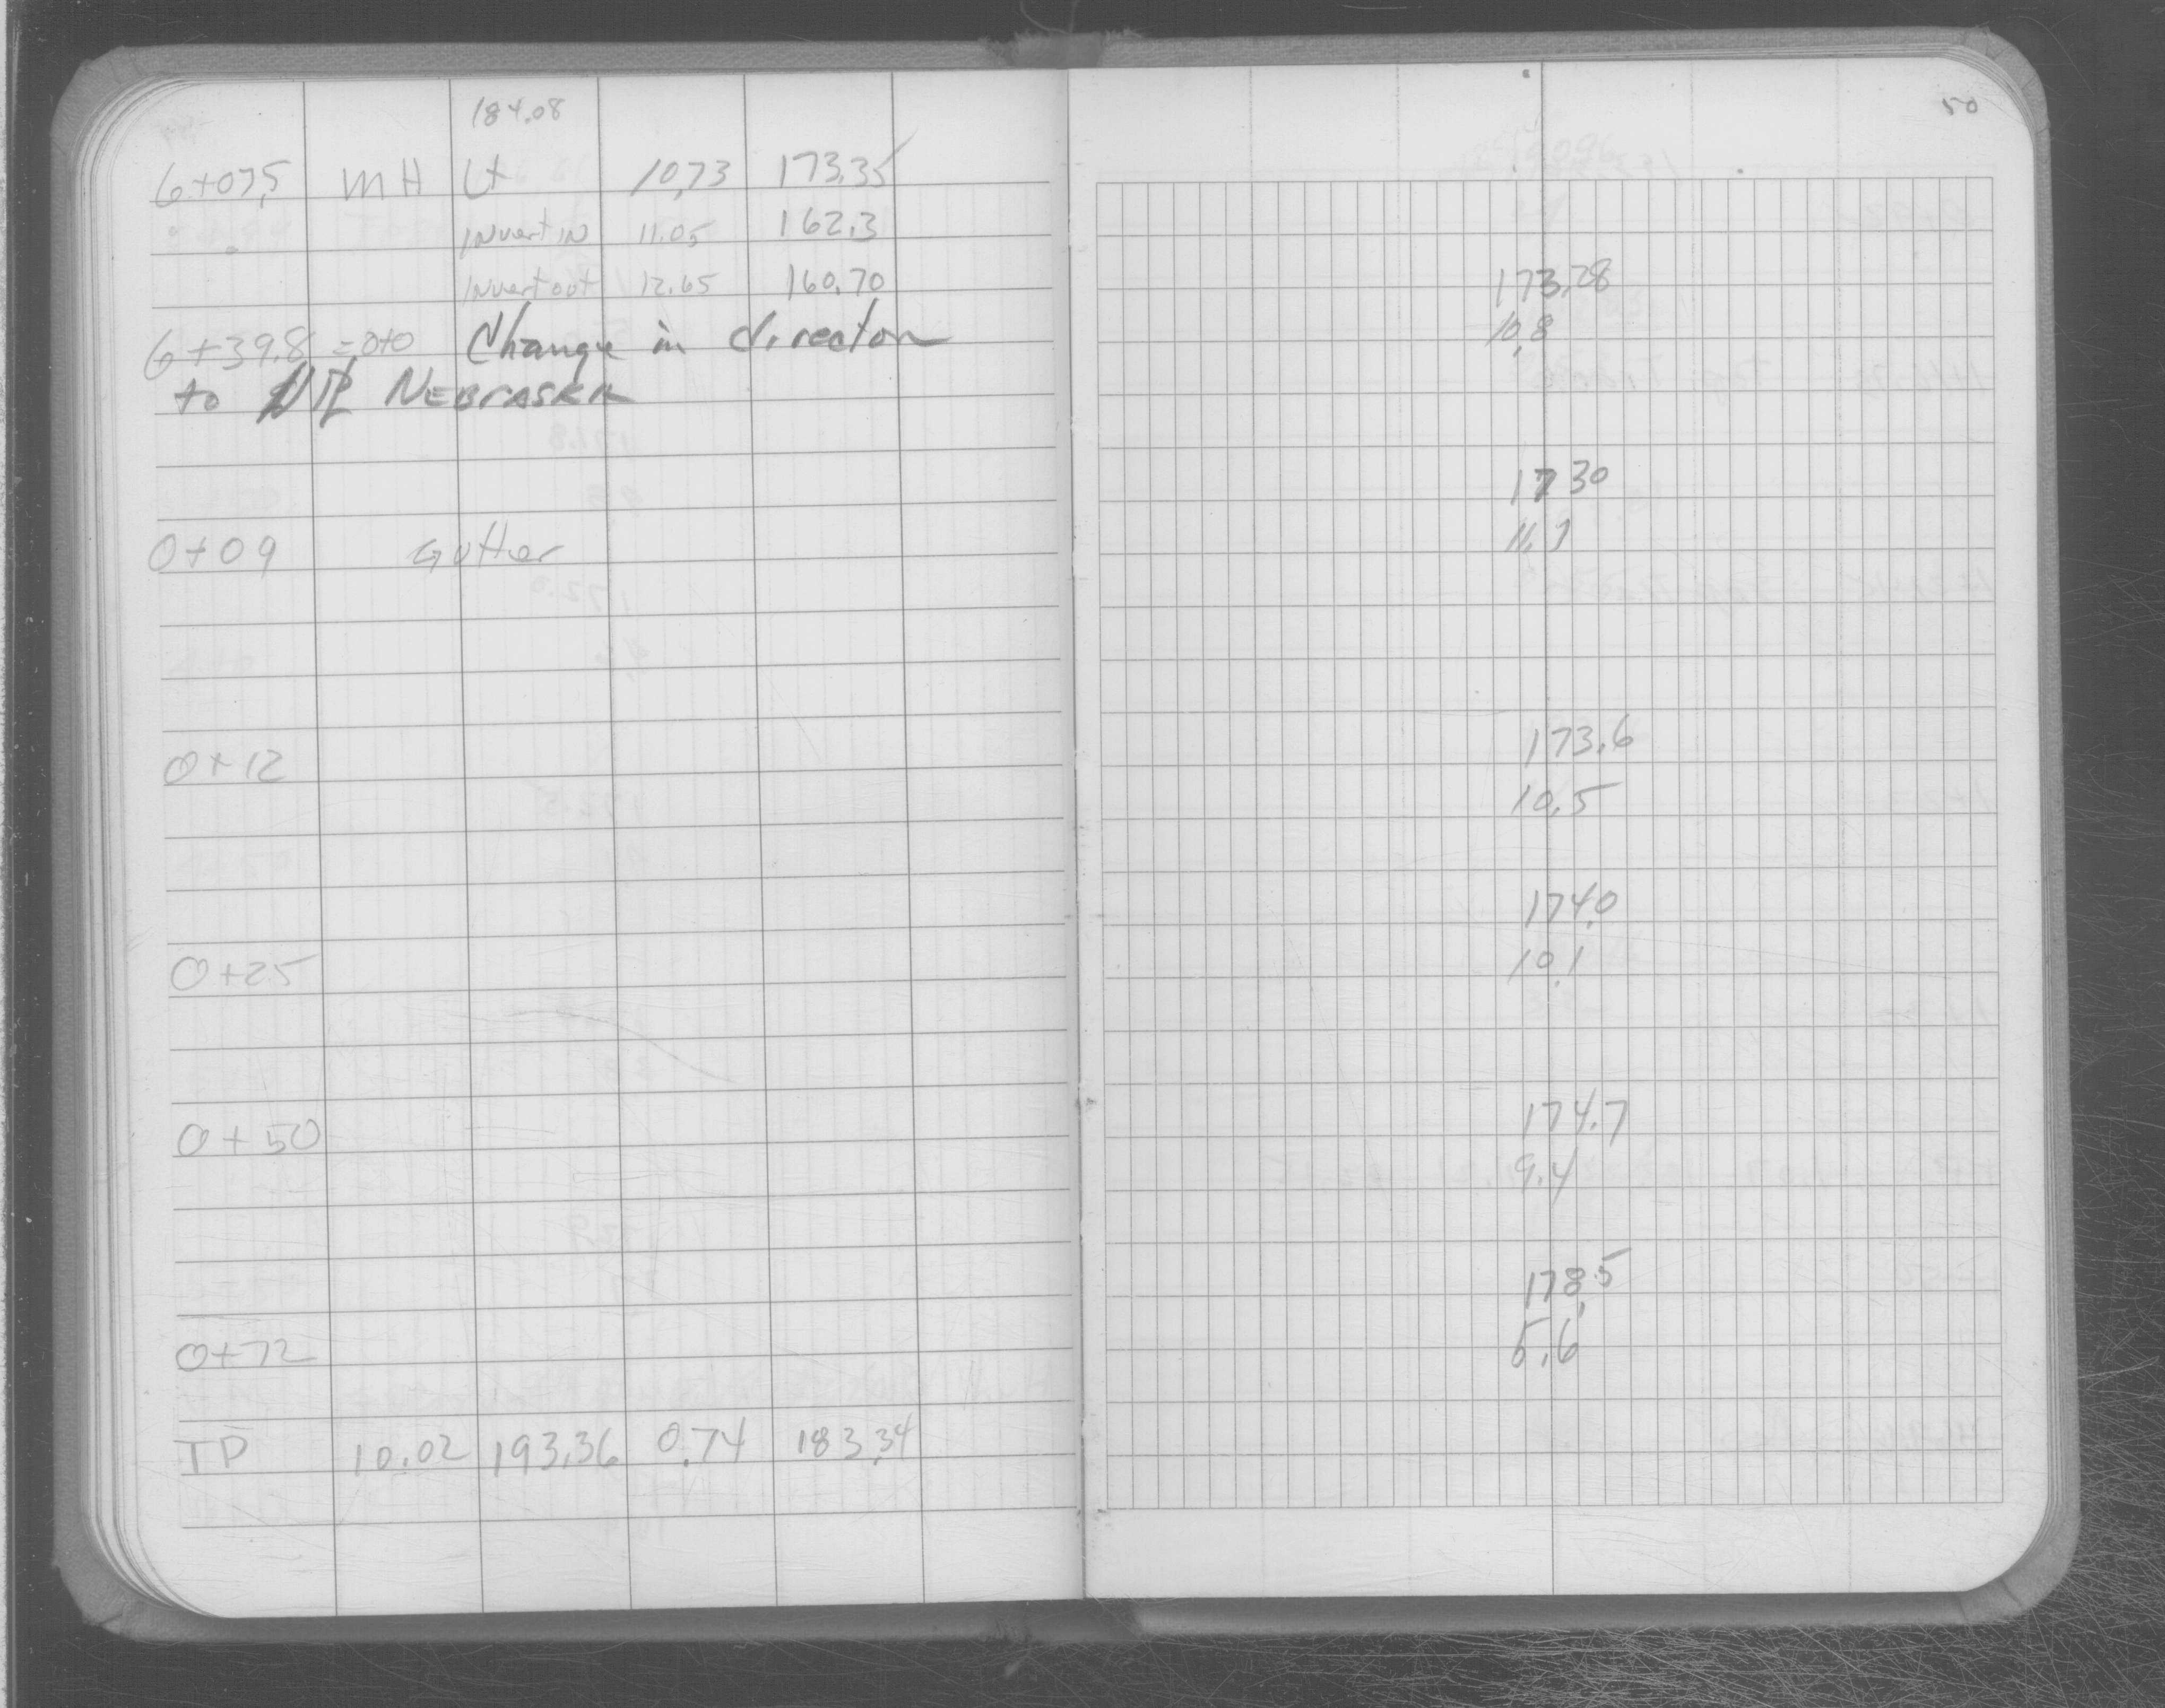 184.08
6+07.5 MH Lt 10.73 173.35
Invert in 11.05 162.3
Invert out 12.65 160.70
6+39.8 = 0+0 Change in direction
to Nebraska
0+09 Gutter
0+12
0+25
0+50
0+72
TP 10.02 193.36 0.74 183.34
50
173.28
10.8
1730
11.1
173.6
10.5
174.0
10.1
174.7
9.4
178.5
5.6